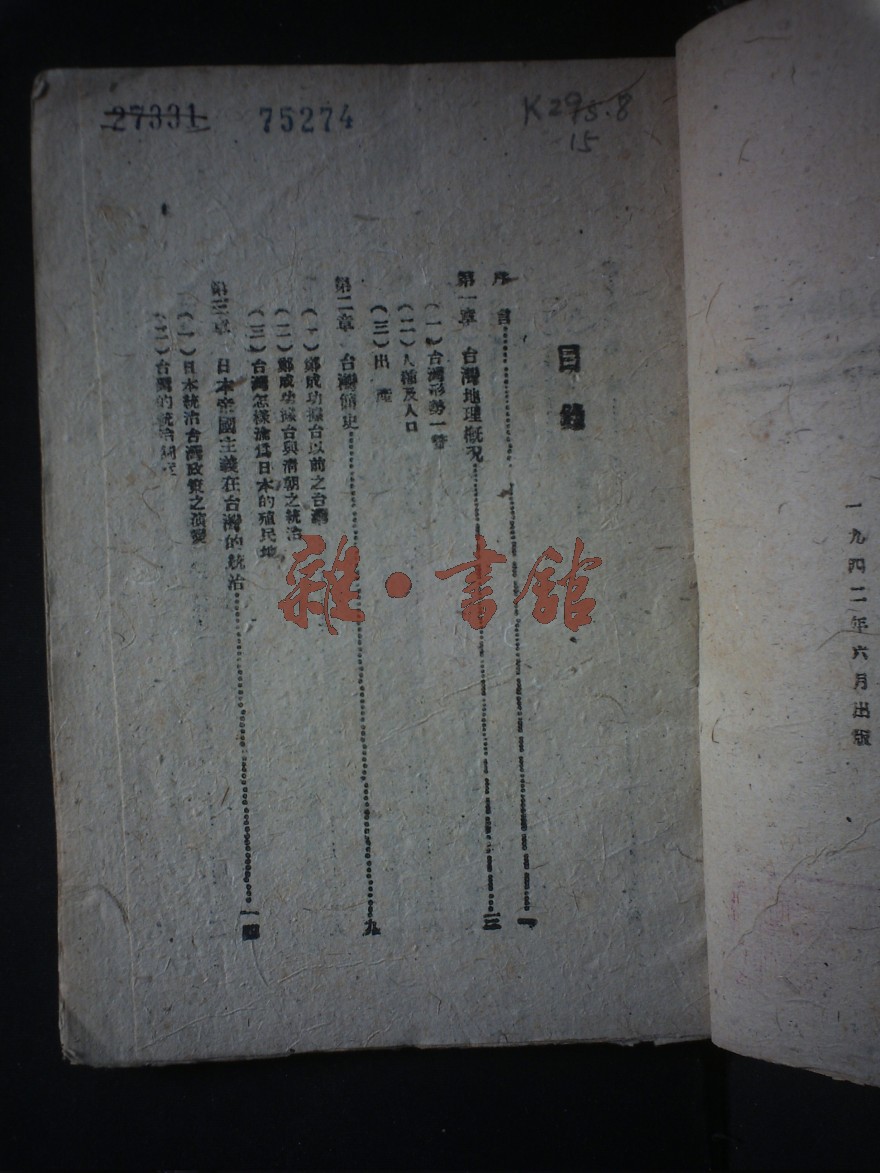 27331 75274
K295.8
15
目錄
序言 一
第一章 台灣地理概況 三
(一)台灣形勢一瞥
(二)人種及人口
(三)出產
第二章 台灣簡史 九
(一)鄭成功據台以前之台灣
(二)鄭成功據台與清朝之統治
(三)台灣怎樣淪爲日本的殖民地
第三章 日本帝國主義在台灣的統治 一四
(一)日本統治台灣政策之演變
(二)台灣的統治
雜·書館
一九四二年六月出版